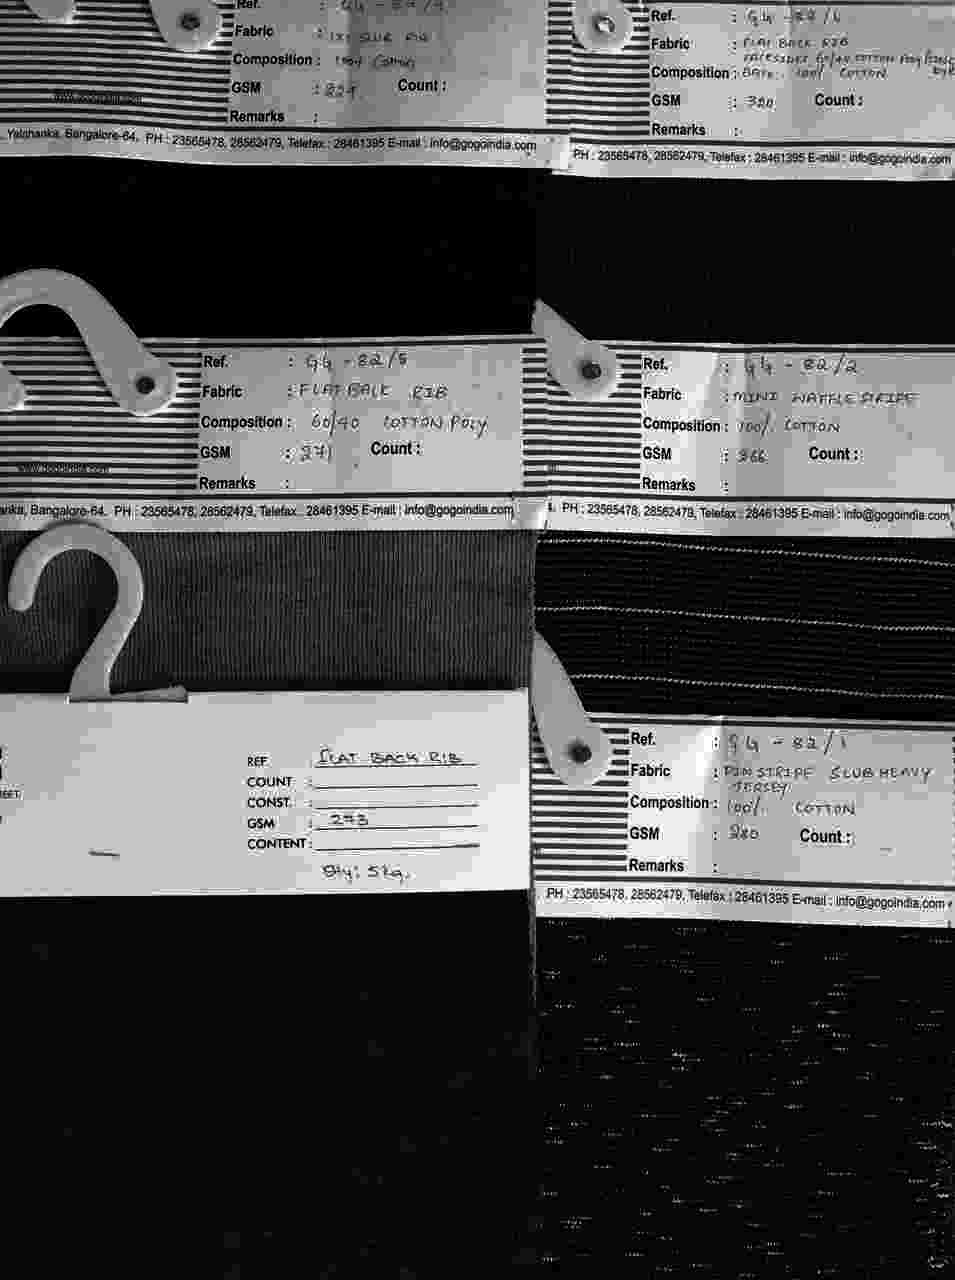 Ref. :
Fabric : 1X1 SLUB RIB
Composition : 100% Cotton
GSM : Count :
Remarks :
www.gogoindia.com
Yelahanka, Bangalore-64. PH : 23565478, 28562479, Telefax : 28461395 E-mail : info@gogoindia.com
Ref. :
Fabric : FLAT BACK RIB
60/40 COTTON POLY
Composition : BACK : 100% COTTON
GSM : 320 Count :
Remarks :
PH : 23565478, 28562479, Telefax : 28461395 E-mail : info@gogoindia.com
Ref. : GG - 82/5
Fabric : FLAT BACK RIB
Composition : 60/40 COTTON POLY
GSM : 271 Count :
Remarks :
www.gogoindia.com
anka, Bangalore-64. PH : 23565478, 28562479, Telefax : 28461395 E-mail : info@gogoindia.com
Ref. : GG - 82/2
Fabric : MINI WAFFLE STRIPE
Composition : 100% COTTON
GSM : 266 Count :
Remarks :
PH : 23565478, 28562479, Telefax : 28461395 E-mail : info@gogoindia.com
REF : FLAT BACK RIB
COUNT :
CONST. :
GSM : 273
CONTENT :
Qty: 5kg.
Ref. : GG - 82/1
Fabric : PIN STRIPE SLUB HEAVY
JERSEY
Composition : 100% COTTON
GSM : 280 Count :
Remarks :
PH : 23565478, 28562479, Telefax : 28461395 E-mail : info@gogoindia.com